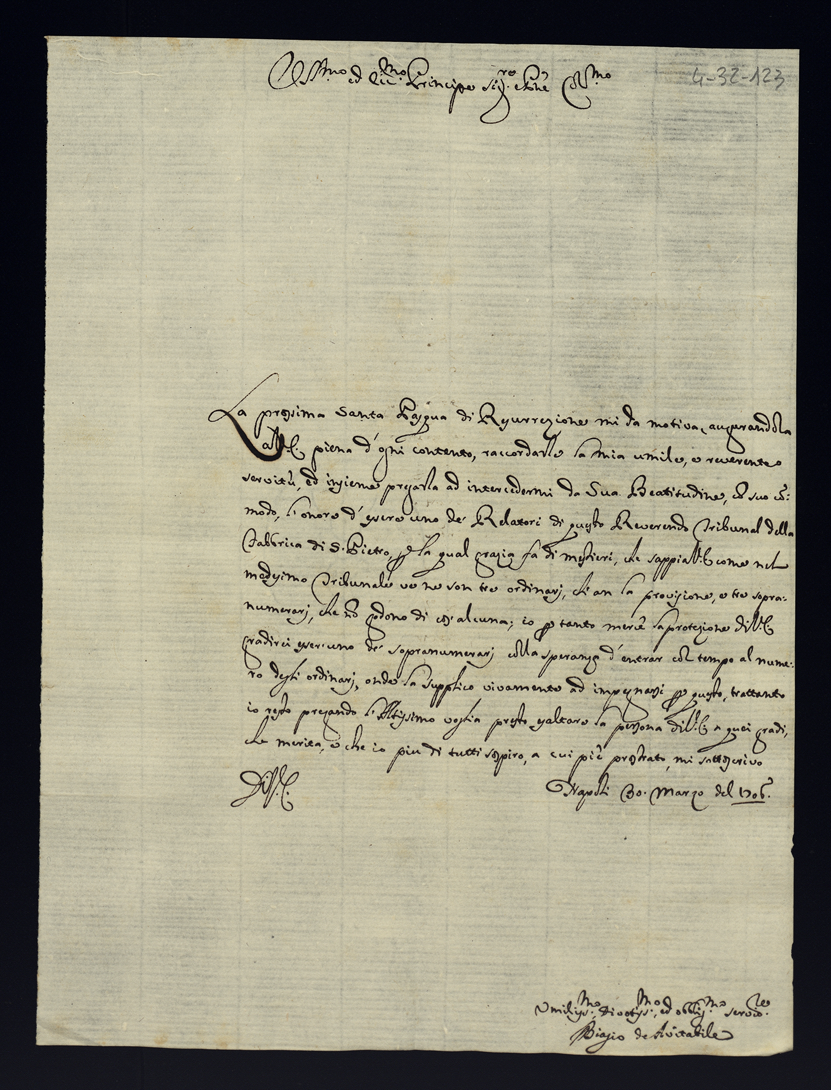 Ill.mo ed Ecc.mo Principe Sig.re e Pne Col.mo
4-32-123
La prossima Santa Pasqua di Resurrezione mi da motivo, augurandola
a V.E. piena d'ogni contento, raccordarle la mia umile, e reverente
servitù, ed insieme pregarla ad intercedermi da Sua Beatitudine, a suo co-
modo, l'onore d'essere uno de' Relatori di questo Reverendo Tribunal della
Fabbrica di S. Pietro, p la qual grazia fa di mestieri, che sappia V.E. come nel
medesimo Tribunale ve ne son tre ordinarj, ch'an la provisione, e tre sopra-
numerarj, che nō godono di cos'alcuna; io p tanto mercè la protezione di V.E.
gradirei esser uno de' sopranumerarj colla speranza d'entrar col tempo al nume-
ro degli ordinarj, onde la supplico vivamente ad impegnarsi p questo, trattanto
io resto pregando l'Altissimo voglia presto esaltare la persona di V.E. a quei gradi,
che merita, e che io piu di tutti sospiro, a cui piè prostrato, mi sottoscrivo
Di V.E.
Napoli 30. Marzo del 1706.
Umiliss.mo, Divotiss.mo, ed obblig.mo servid.re
Biagio de Avitabile